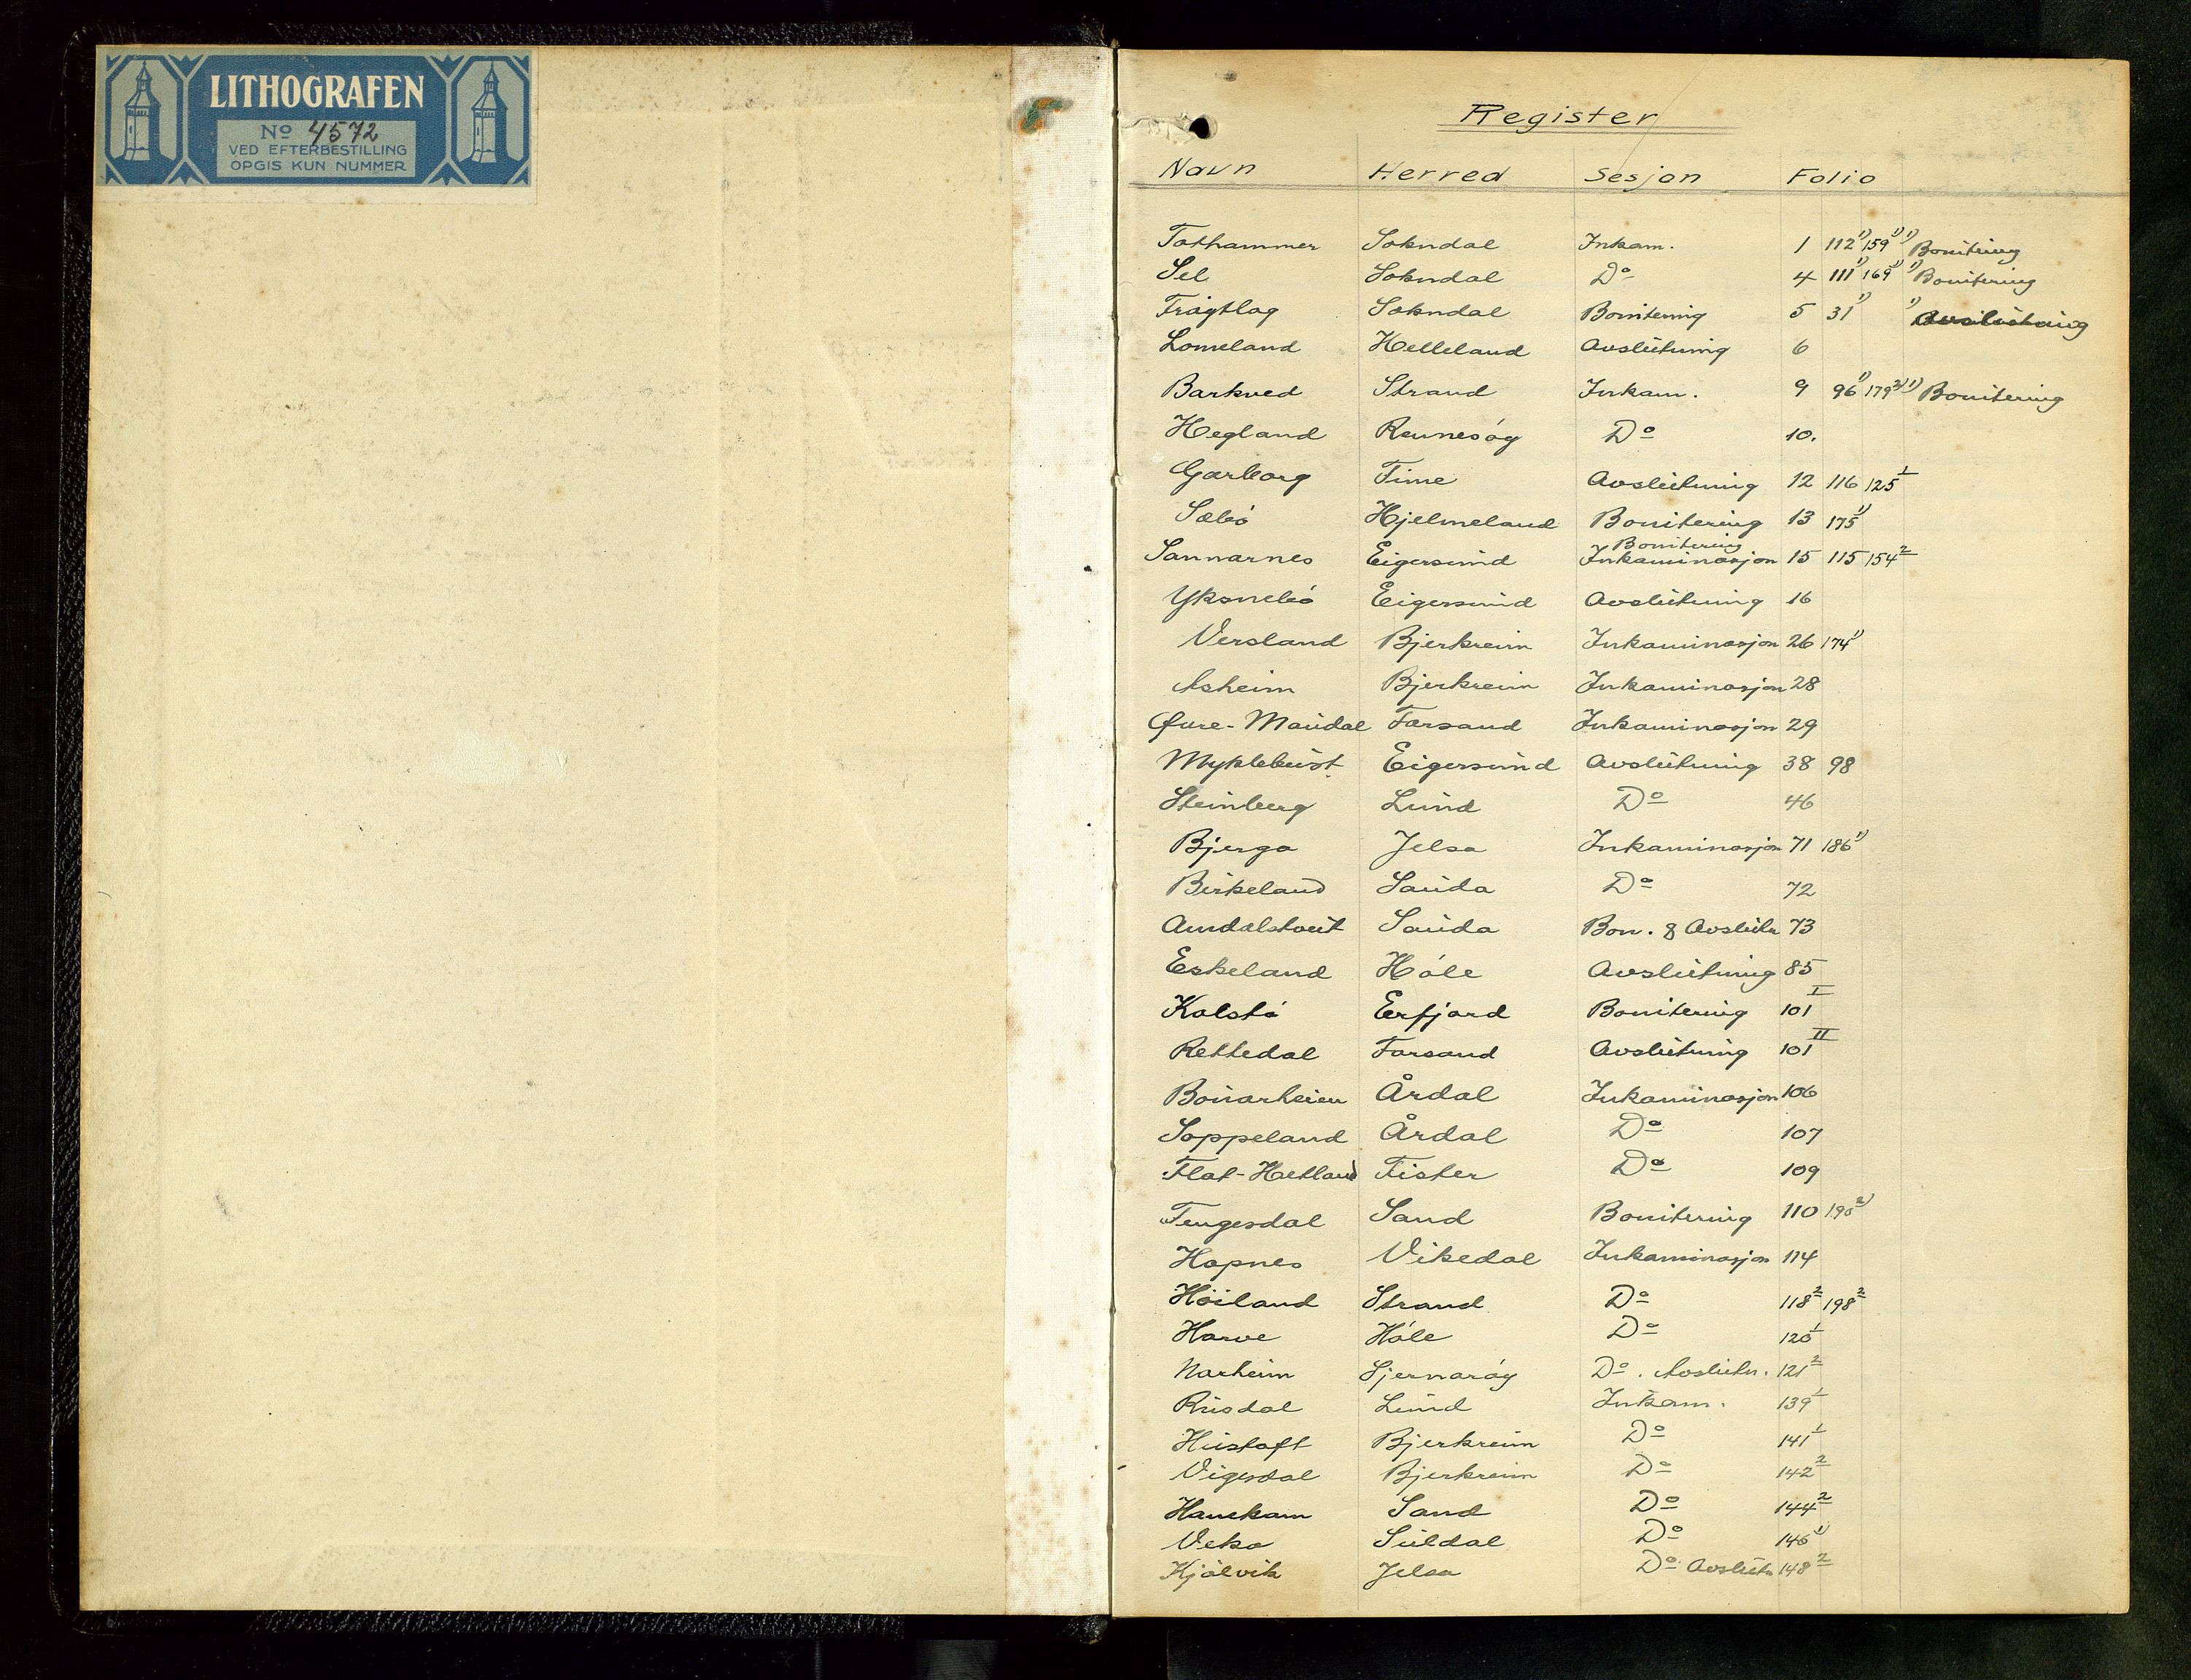 LITHOGRAFEN
No 4572
VED EFTERBESTILLING
OPGIS KUN NUMMER
Register
Navn Herred Sesjon Folio
Tothammer Sokndal Inkam. 1 112 1) 159 1) 1) Bonitering
Sel Sokndal Do 4 111 1) 169 1) 1) Bonitering
Trågtlag Sokndal Bonitering 5 31 1) 1)
Lomeland Helleland Avslutning 6
Barkved Strand Inkam. 9 96 1) 179 2) 1) Bonitering
Hegland Rennesøy Do 10.
Garborg Time Avslutning 12 116 125 1
Sæbø Hjelmeland Bonitering 13 175 1)
Bonitering
Sannarnes Eigersund Inkaminasjon 15 115 154 2
Yksnebø Eigersund Avslutning 16
Versland Bjerkreim Inkaminasjon 26 174 1)
Asheim Bjerkreim Inkaminasjon 28
Øvre-Maudal Forsand Inkaminasjon 29
Myklebust Eigersund Avslutning 38 98
Steinberg Lund Do 46
Bjerga Jelsa Inkaminasjon 71 186 1)
Birkeland Sauda Do 72
Amdalstveit Sauda Bon. & Avslutn 73
Eskeland Høle Avslutning 85
Kolstø Erfjord Bonitering 101 I
Rettedal Forsand Avslutning 101 II
Boiarheien Årdal Inkaminasjon 106
Soppeland Årdal Do 107
Flat-Hetland Fister Do 109
Tengesdal Sand Bonitering 110 190 2)
Hapnes Vikedal Inkaminasjon 114
Høiland Strand Do 118 2 198 2
Harve Høle Do 120 1
Narheim Sjernarøy Do. Avslutn. 121 2
Rusdal Lund Inkam. 139 1
Hustoft Bjerkreim Do 141 1
Vigesdal Bjerkreim Do 142 2
Hauskam Sand Do 144 2
Veka Suldal Do 146 1)
Kjølvik Jelsa Do Avslutn 148 2